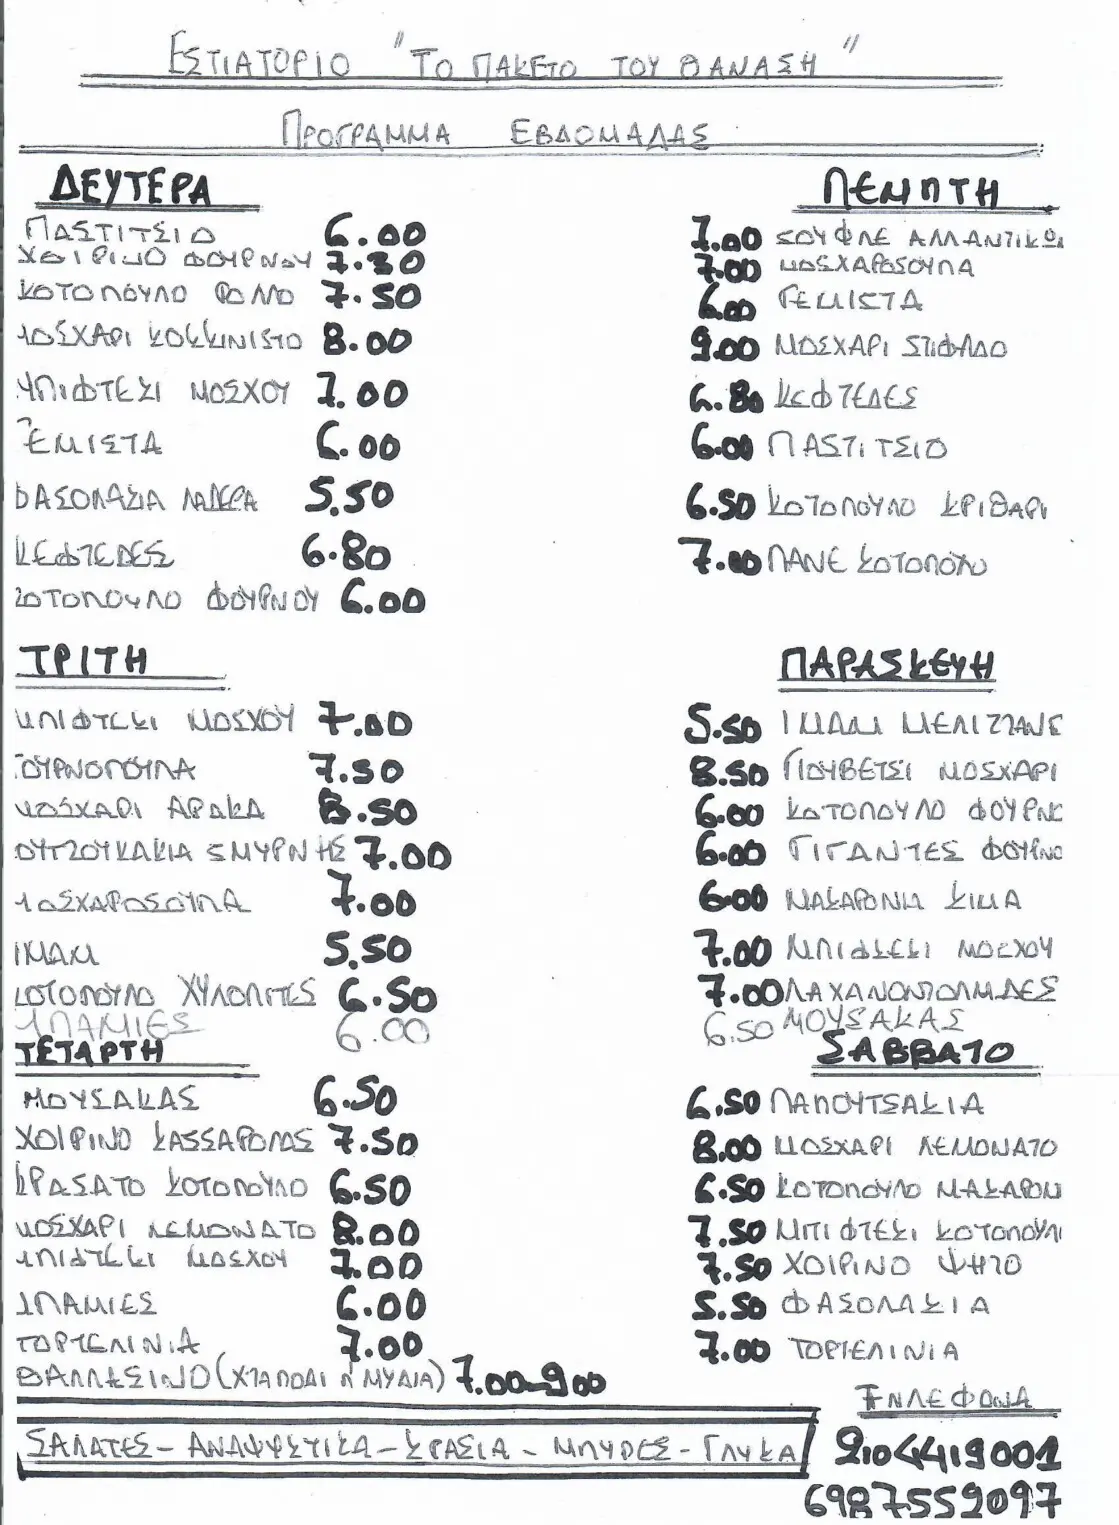 ΕΣΤΙΑΤΟΡΙΟ "ΤΟ ΠΑΚΕΤΟ ΤΟΥ ΘΑΝΑΣΗ"
ΠΡΟΓΡΑΜΜΑ ΕΒΔΟΜΑΔΑΣ
ΔΕΥΤΕΡΑ
ΠΑΣΤΙΤΣΙΟ 6.00
ΧΟΙΡΙΝΟ ΦΟΥΡΝΟΥ 7.30
ΚΟΤΟΠΟΥΛΟ ΡΟΛΛΟ 7.50
ΜΟΣΧΑΡΙ ΚΟΚΚΙΝΙΣΤΟ 8.00
ΜΠΙΦΤΕΚΙ ΜΟΣΧΟΥ 7.00
ΓΕΜΙΣΤΑ 6.00
ΦΑΣΟΛΑΚΙΑ ΛΑΔΕΡΑ 5.50
ΚΕΦΤΕΔΕΣ 6.80
ΚΟΤΟΠΟΥΛΟ ΦΟΥΡΝΟΥ 6.00
ΤΡΙΤΗ
ΜΠΙΦΤΕΚΙ ΜΟΣΧΟΥ 7.00
7.50
ΜΟΣΧΑΡΙ ΑΡΑΚΑ 8.50
ΣΟΥΤΖΟΥΚΑΚΙΑ ΣΜΥΡΝΗΣ 7.00
ΜΟΣΧΑΡΟΣΟΥΠΑ 7.00
ΙΜΑΜ 5.50
ΚΟΤΟΠΟΥΛΟ ΧΥΛΟΠΙΤΕΣ 6.50
ΜΠΑΜΙΕΣ 6.00
ΤΕΤΑΡΤΗ
ΜΟΥΣΑΚΑΣ 6.50
ΧΟΙΡΙΝΟ ΚΑΣΣΑΡΟΛΑΣ 7.50
ΚΡΑΣΑΤΟ ΚΟΤΟΠΟΥΛΟ 6.50
ΜΟΣΧΑΡΙ ΛΕΜΟΝΑΤΟ 8.00
ΜΠΙΦΤΕΚΙ ΜΟΣΧΟΥ 7.00
ΜΠΑΜΙΕΣ 6.00
ΤΟΡΤΕΛΙΝΙΑ 7.00
ΘΑΛΛΣΙΝΟ (ΧΤΑΠΟΔΙ Η ΜΥΔΙΑ) 7.00-9.00
ΠΕΜΠΤΗ
7.00 ΣΟΥΦΛΕ ΑΛΛΑΝΤΙΚΩ
7.00 ΜΟΣΧΑΡΟΣΟΥΠΑ
6.00 ΓΕΜΙΣΤΑ
9.00 ΜΟΣΧΑΡΙ ΣΤΙΦΑΔΟ
6.80 ΚΕΦΤΕΔΕΣ
6.00 ΠΑΣΤΙΤΣΙΟ
6.50 ΚΟΤΟΠΟΥΛΟ ΚΡΙΘΑΡΙ
7.00 ΠΑΝΕ ΚΟΤΟΠΟΥΛΟ
ΠΑΡΑΣΚΕΥΗ
5.50 ΙΜΑΜ ΜΕΛΙΤΖΑΝΕΣ
8.50 ΓΙΟΥΒΕΤΣΙ ΜΟΣΧΑΡΙ
6.00 ΚΟΤΟΠΟΥΛΟ ΦΟΥΡΝΟ
6.00 ΓΙΓΑΝΤΕΣ ΦΟΥΡΝΟ
6.00 ΜΑΚΑΡΟΝΙΑ ΚΙΜΑ
7.00 ΜΠΙΦΤΕΚΙ ΜΟΣΧΟΥ
7.00 ΛΑΧΑΝΟΝΤΟΛΜΑΔΕΣ
6.50 ΜΟΥΣΑΚΑΣ
ΣΑΒΒΑΤΟ
6.50 ΠΑΠΟΥΤΣΑΚΙΑ
8.00 ΜΟΣΧΑΡΙ ΛΕΜΟΝΑΤΟ
6.50 ΚΟΤΟΠΟΥΛΟ ΜΑΚΑΡΟΝΙ
7.50 ΜΠΙΦΤΕΚΙ ΚΟΤΟΠΟΥΛΟ
7.50 ΧΟΙΡΙΝΟ ΨΗΤΟ
5.50 ΦΑΣΟΛΑΚΙΑ
7.00 ΤΟΡΤΕΛΙΝΙΑ
ΤΗΛΕΦΩΝΑ
2104419001
6987559097
ΣΑΛΑΤΕΣ - ΑΝΑΨΥΚΤΙΚΑ - ΚΡΑΣΙΑ - ΜΠΥΡΕΣ - ΓΛΥΚΑ